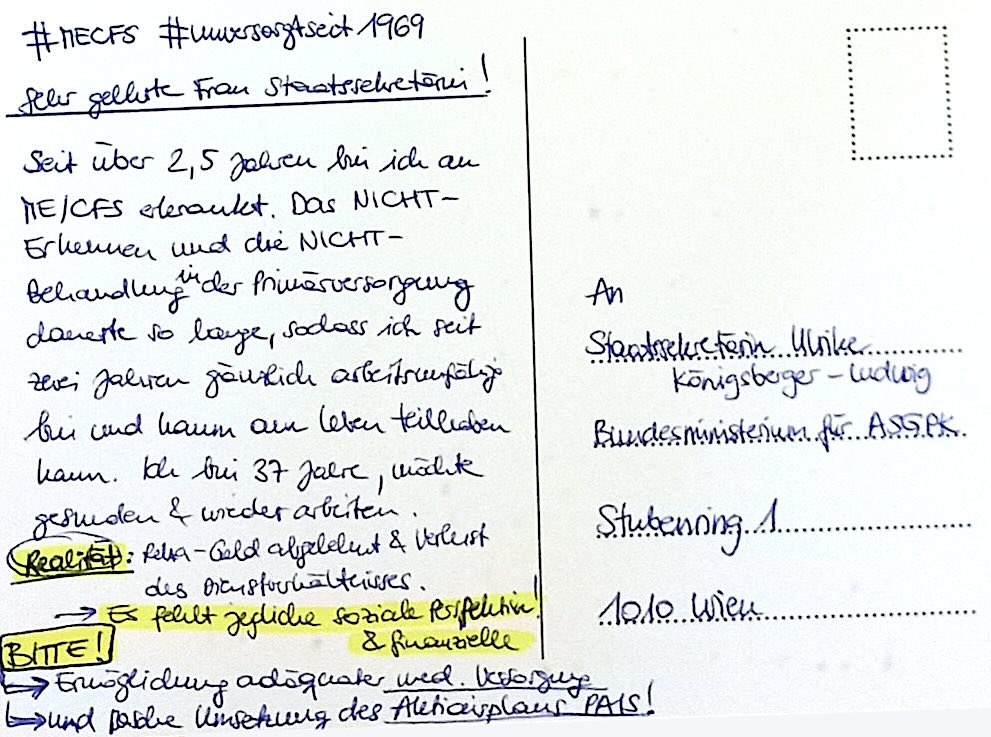 #MECFS #unversorgtseit1969
Sehr geehrte Frau Staatssekretärin!
Seit über 2,5 Jahren bin ich an
ME/CFS erkrankt. Das NICHT-
Erkennen und die NICHT-
Behandlung in der Primärversorgung
dauerte so lange, sodass ich seit
zwei Jahren gänzlich arbeitsunfähig
bin und kaum am Leben teilhaben
kann. Ich bin 37 Jahre, möchte
gesunden & wieder arbeiten.
Realität: Reha-Geld abgelehnt & Verlust
des Dienstverhältnisses.
→ Es fehlt jegliche soziale Perspektive!
& finanzielle
BITTE!
→ Ermöglichung adäquater med. Versorgung
→ und rasche Umsetzung des Aktionsplans PAIS!
An
Staatssekretärin Ulrike
Königsberger-Ludwig
Bundesministerium für ASGPK
Stubenring 1
1010 Wien